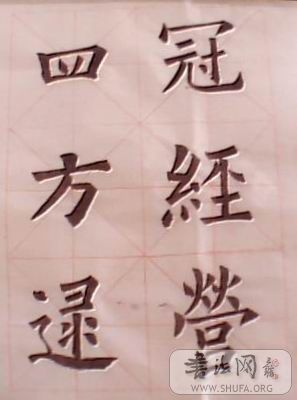 冠經營
四方逮
書法网
WWW.SHUFA.ORG